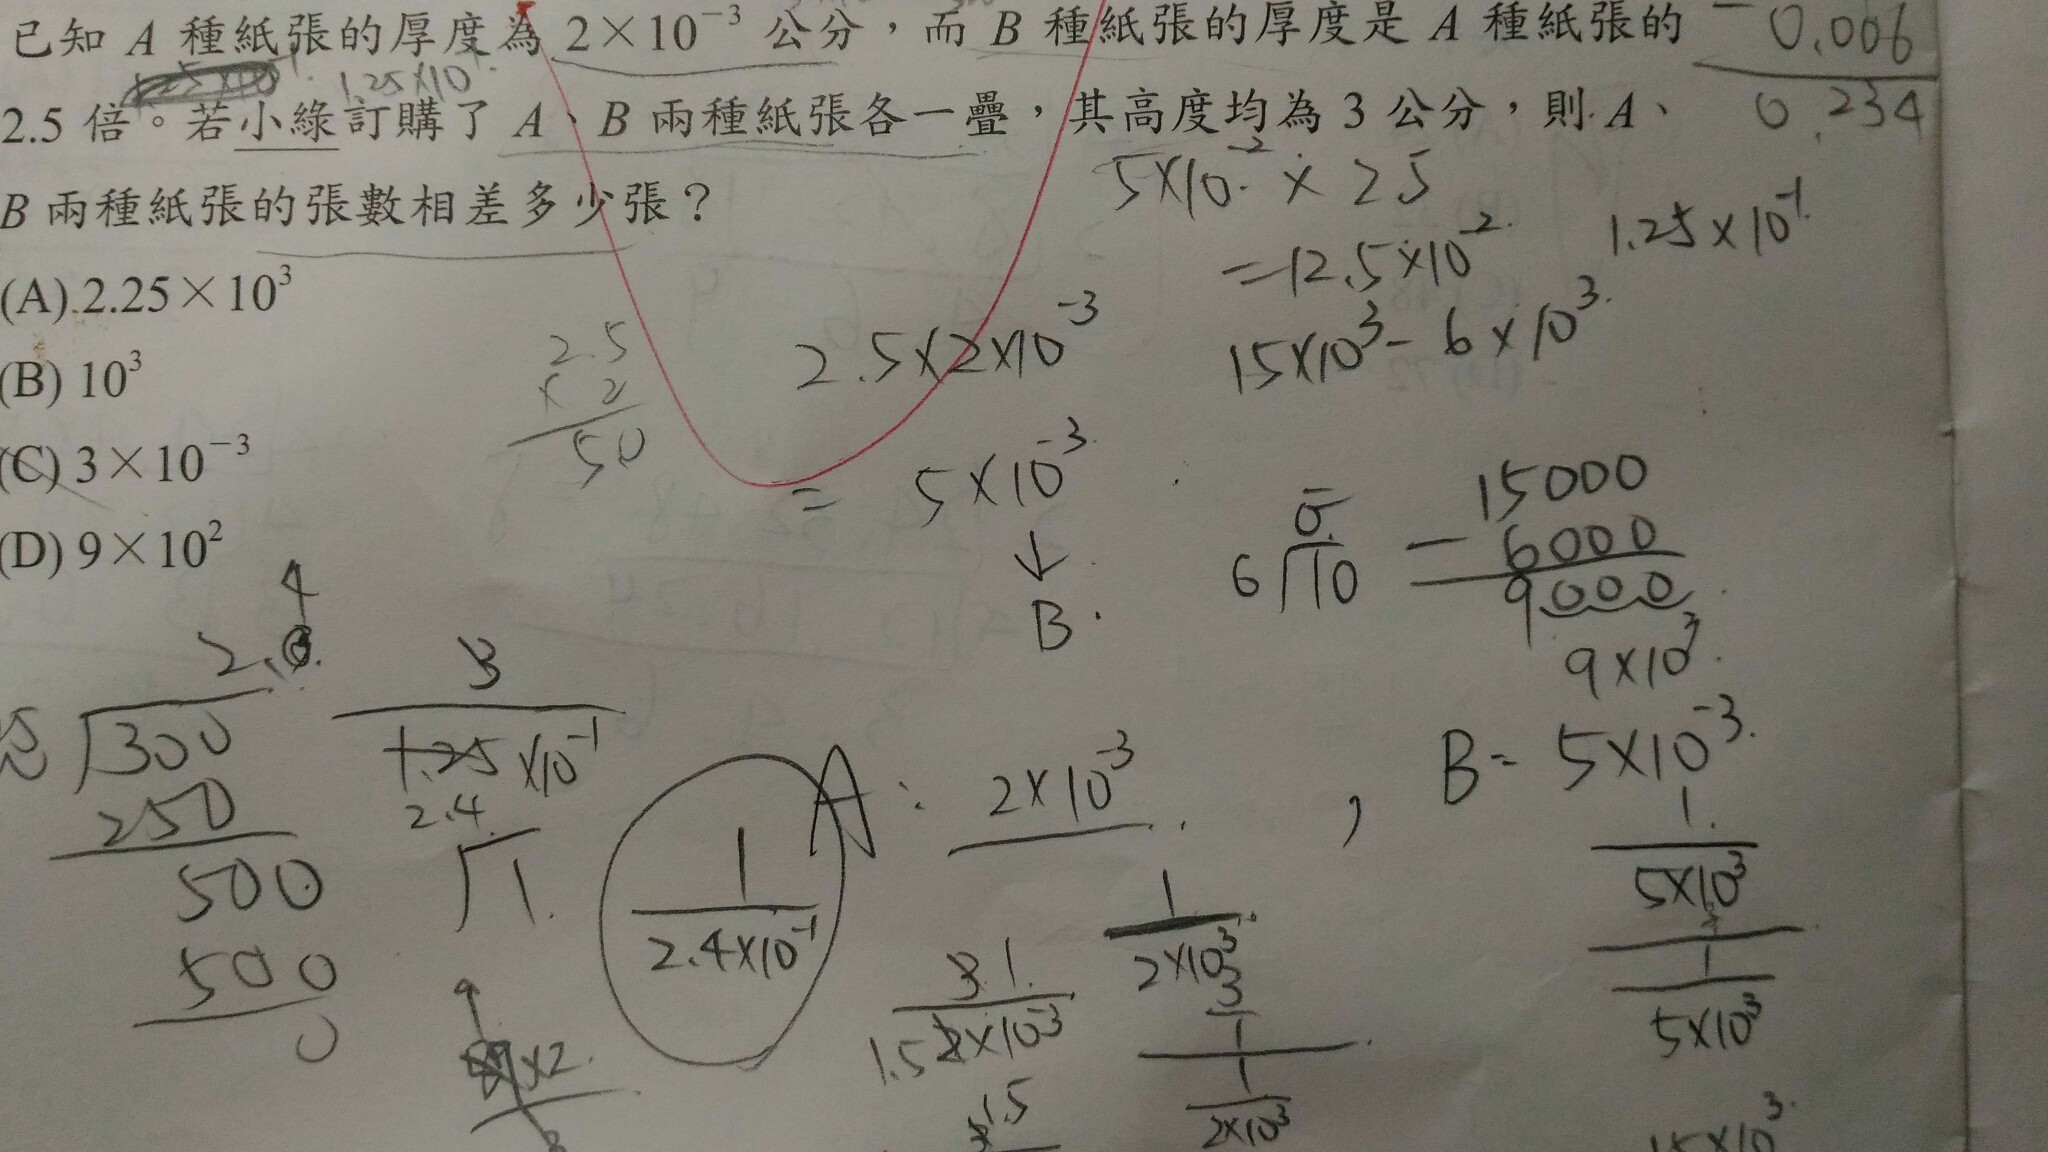 已知 A 種紙張的厚度為 2×10⁻³ 公分，而 B 種紙張的厚度是 A 種紙張的
2.5 倍。若小綠訂購了 A、B 兩種紙張各一疊，其高度均為 3 公分，則 A、
B 兩種紙張的張數相差多少張？
(A) 2.25×10³
(B) 10³
(C) 3×10⁻³
(D) 9×10²
0.006
0.234
1.25×10⁻¹
5×10⁻² × 25
=12.5×10⁻²
1.25×10⁻¹
15×10³ - 6×10³
2.5
× 2
50
2.5×2×10⁻³
= 5×10⁻³
↓
B
6 10
15000
- 6000
9000
9×10³
4
2.
300
250
500
500
0
3
1.25×10⁻¹
2.4
1
1
2.4×10⁻¹
A : 2×10⁻³ , B = 5×10⁻³
1
2×10³
3
1
1
2×10³
3 1
1.5 2×10⁻³
1.5
1
5×10³
1
5×10³
×2
15×10³